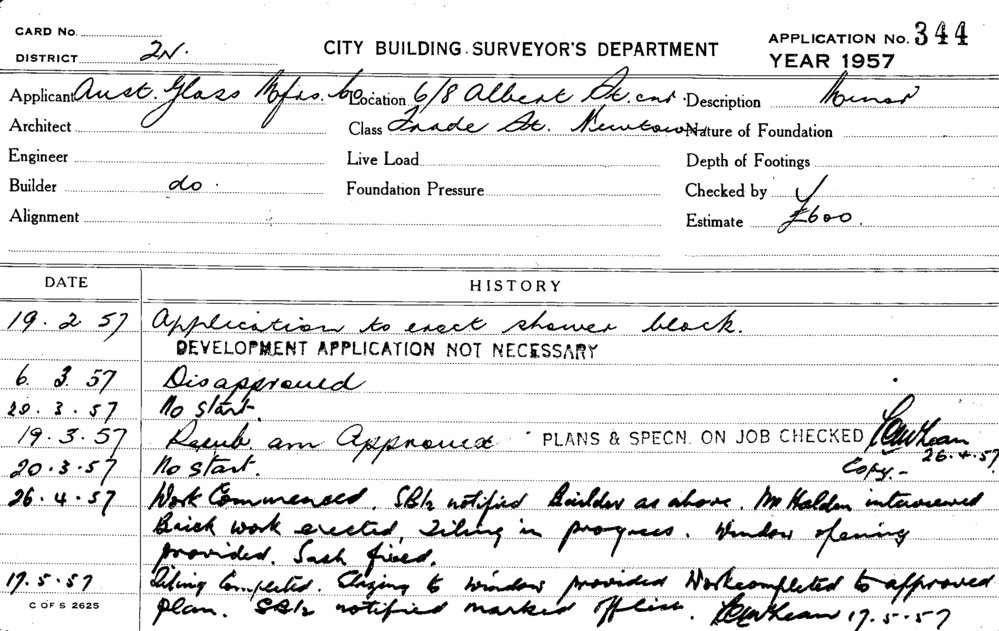 CARD No.
DISTRICT 2N.
CITY BUILDING SURVEYOR'S DEPARTMENT
APPLICATION No. 344
YEAR 1957
Applicant Aust. Glass Mfrs. Co Location 6/8 Albert St. cnr. Description Minor
Architect Class Trade St. Newtown Nature of Foundation
Engineer Live Load Depth of Footings
Builder do. Foundation Pressure Checked by
Alignment Estimate £600.
DATE HISTORY
19. 2 57 Application to erect shower block.
DEVELOPMENT APPLICATION NOT NECESSARY
6. 3. 57 Disapproved
20. 3. 57 No start.
19. 3. 57 Resub. am Approved PLANS & SPECN. ON JOB CHECKED
26.4.57
20.3.57 No start. Copy.-
26. 4. 57 Work Commenced. SB1/2 notified Builder as above. Mr Halden interviewed
Brick work erected, Tiling in progress. Window opening
provided. Sash fixed.
17. 5. 57 Tiling Completed. Glazing to window provided Work completed to approved
plan. SB1/2 notified marked off list. 17.5.57
C OF S 2625